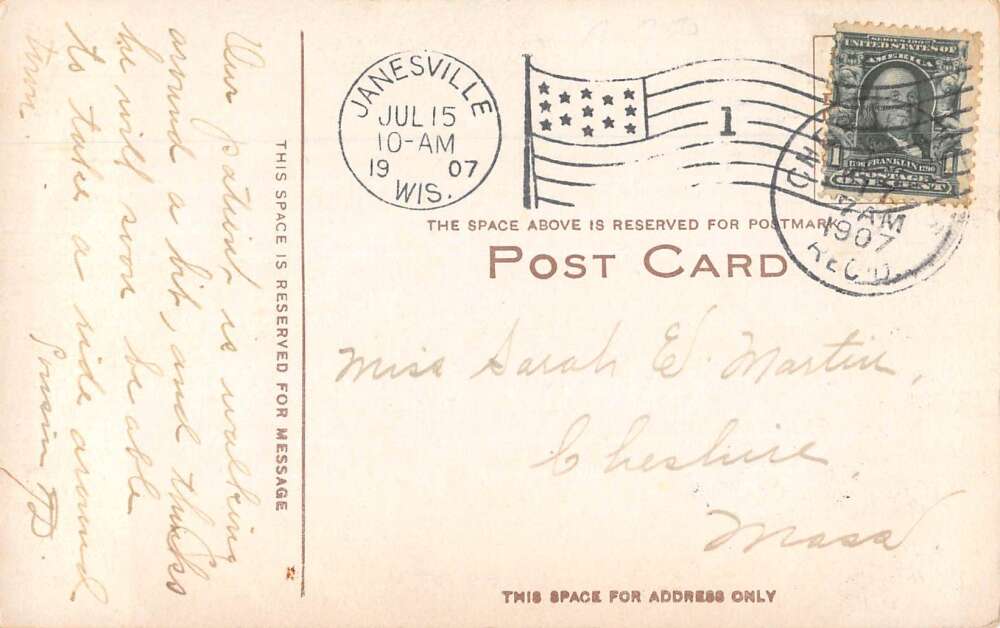 Our patient is walking
around a bit, and thinks
he will soon be able
to take a ride around
town.
Cousin
THIS SPACE IS RESERVED FOR MESSAGE
JANESVILLE
JUL 15
10-AM
19 07
WIS.
1
SERIES 1902
UNITED STATES OF
AMERICA
1706 FRANKLIN 1790
POSTAGE
1 ONE CENT 1
7 AM
1907
REC'D.
THE SPACE ABOVE IS RESERVED FOR POSTMARK
POST CARD
Miss Sarah E. Martin,
Cheshire,
Mass.
THIS SPACE FOR ADDRESS ONLY